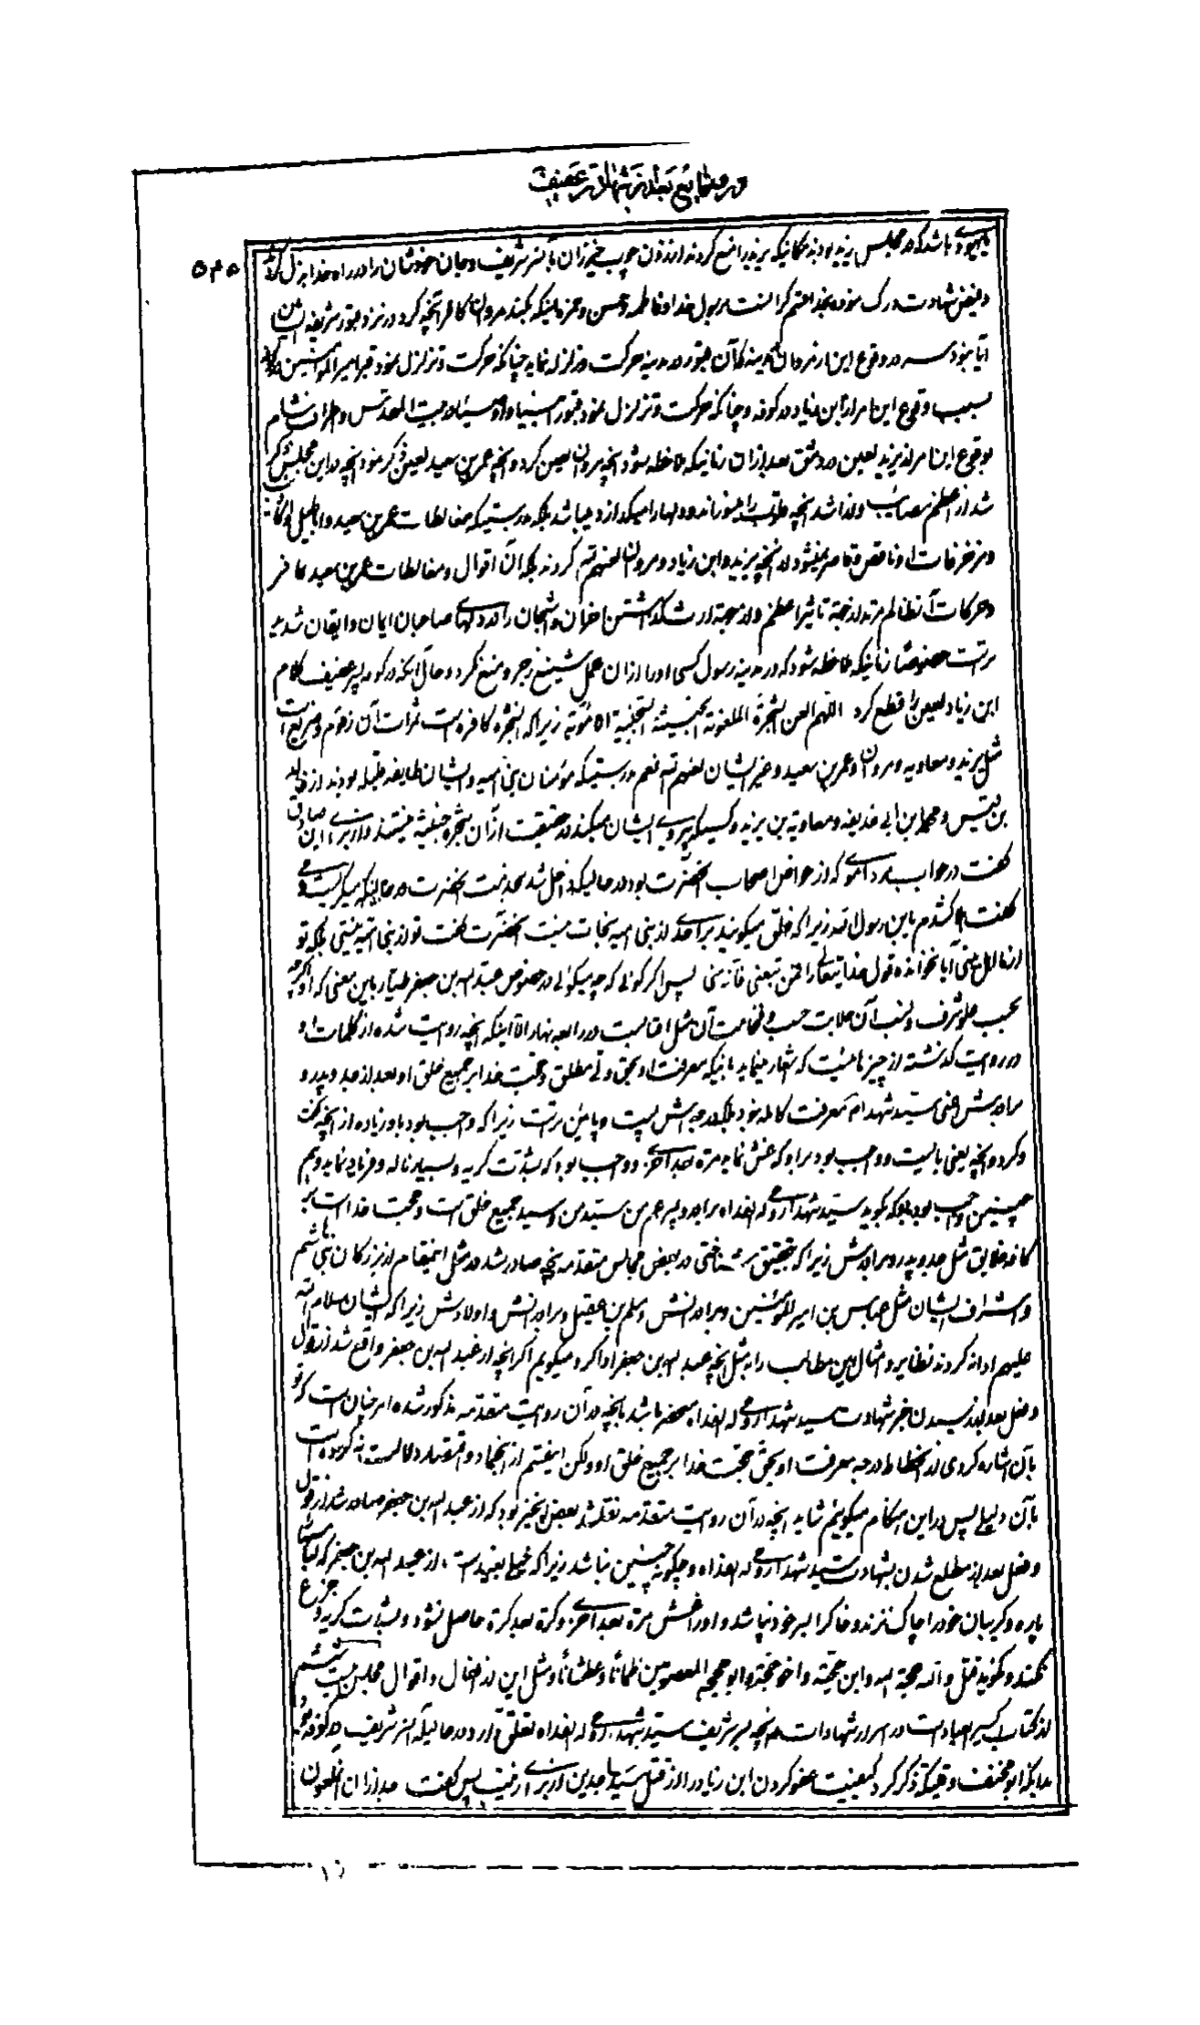 در وقایع بعد از شهادت پسر عفیف
۵۴۵
یا یهودی باشد که در مجلس یزید بودند هنگامیکه یزید را منع کردند از زدن چوب خیزران بآن سر شریف و جان خودشان را در راه خدا بذل کردند
و فیض شهادت درک نمودند بخدا قسم
آیا نبود سبب در وقوع این امر در مدینه که آن قبور در مدینه حرکت و تزلزل نماید چنانکه حرکت و تزلزل نمود قبر امیر المؤمنین در کوفه
بسبب وقوع این امر از ابن زیاد در کوفه و چنانکه حرکت و تزلزل نمود قبور انبیاء و اوصیاء در بیت المقدس و اطراف شام
بوقوع این امر از یزید لعین در دمشق بعد از آن زمانیکه ملاحظه شود آنچه مروان لعین کرد و آنچه عمر بن سعید لعین ذکر نمود آنچه در این مجلس ذکر
شد از اعظم مصائب و اشد آنچه قلوب را میسوزاند و دلها را میگدازد میباشد بلکه بدرستیکه مغالطات عمر بن سعید و اباطیل
و مزخرفات او ناقص و قاصر نمیشود از آنچه یزید و ابن زیاد و مروان لعنهم الله کردند بلکه آن اقوال و مغالطات عمر بن سعید کافر
و حرکات آن ظالم مرتد از جهة تاثیر اعظم و از جهة اشد گذاشتن احزان و اشجان را در دلهای صاحبان ایمان و ایقان شدید
تر است خصوصا زمانیکه ملاحظه شود که در مدینه رسول کسی او را از آن عمل شنیع زجر و منع نکرد و حال آنکه در کوفه پسر عفیف کلام
ابن زیاد لعین را قطع کرد اللهم العن الشجرة الملعونة الخبیثة زیرا که شجره کافره است ثمرات آن زقوم و ضریع است
مثل یزید و معاویه و مروان و عمر بن سعید و غیر ایشان لعنهم الله نعم بدرستیکه مؤمنان بنی امیه و ایشان طایفه قلیله بودند از
بن قیس و محمد ابن ابی حذیفه و معاویه بن یزید و کسیکه پیروی ایشان میکند در حقیقت از آن شجره خبیثه نیستند و از برای این صادق
گفت در جواب مرد اموی که از خواص اصحاب آنحضرت بود در حالیکه داخل شد بخدمت آنحضرت در حالیکه میگریست و
گفت هلاک شدم یا بن رسول الله زیرا که خلق میگویند برای احدی از بنی امیه نجات نیست آنحضرت گفت تو از بنی امیه نیستی بلکه تو
از ما اهل بیتی آیا نخوانده قول خدایتعالی را فمن تبعنی فانه منی پس اگر گوئی که چه میگوئی در خصوص عبد الله بن جعفر طیار باین معنی که او اگر چه
بحسب علو شرف و نسب آن جلالت حسب و فخامت آن مثل آفتاب است در رابعه نهار الا اینکه آنچه روایت شده از کلمات او
در روایت گذشته از چیزهائیست که اشعار مینماید باینکه معرفت او بحق ولی مطلق و حجت خدا بر جمیع خلق او بعد از جد و پدر و
برادرش اعنی سید شهدا معرفت کامله نبود بلکه درجه اش پست و پائین تر است زیرا که واجب بود باو زیاده از آنچه گفت
و کرد و آنچه یعنی بایست و واجب بود بر او که غش نماید مرة بعد اخری و واجب بود که بشدت گریه و بسیار ناله و فریاد نماید و هم
چنین واجب بود باو که بگوید سید شهدا روحی له الفداه برادر و پسر عم من سید من و سید جمیع خلق است و حجت خدا است بر
کافه خلایق مثل جد و پدر و برادرش زیرا که بتحقیق شناختی در بعض مجالس متقدمه آنچه صادر شد در مثل اینمقام از بزرگان بنی هاشم
و اشراف ایشان مثل عباس بن امیر المؤمنین و برادرانش و مسلم بن عقیل و برادرانش و اولادش زیرا که ایشان سلام الله
علیهم ادا نکردند نظایر و امثال این مطالب را بمثل آنچه عبد الله بن جعفر ادا کرد میگویم اگر آنچه از عبد الله بن جعفر واقع شد از قول
و فعل بعد از رسیدن خبر شهادت سید شهدا روحی له الفداه منحصر باشد بآنچه در آن روایت متقدمه مذکور شده امر چنان است که تو
بآن اشاره کردی از انحطاط درجه معرفت او بحق حجت خدا بر جمیع خلق او ولکن
بآن دلیلی پس در این هنگام میگویم شاید آنچه در آن روایت متقدمه نقل شد بعض آنچیز بود که از عبد الله بن جعفر صادر شد از قول
و فعل بعد از مطلع شدن بشهادت سید شهدا روحی له الفداه و چگونه چنین نباشد زیرا که خیلی بعید است از عبد الله بن جعفر که لباسها
پاره و گریبان خود را چاک نزند و خاک را بسر خود نپاشد و او را غش مرة بعد اخری و کرة بعد کرة حاصل نشود و بشدت گریه و جزع
نکند و نگوید قتل والله حجة الله و ابن حجته و اخو حجته و ابو حجج المعصومین ظمآنا و عطشانا و مثل این از افعال و اقوال مجلس بیست ششم
از کتاب اکسیر العبادات در اسرار شهادات در آنچه بسر شریف سید شهدا روحی له الفداه تعلق دارد در حالیکه آن سر شریف در کوفه بود
بدانکه ابو مخنف وقتیکه ذکر کرد کیفیت عفو کردن ابن زیاد را از قتل سید ساجدین از برای زینب پس گفت بعد از آن آنملعون